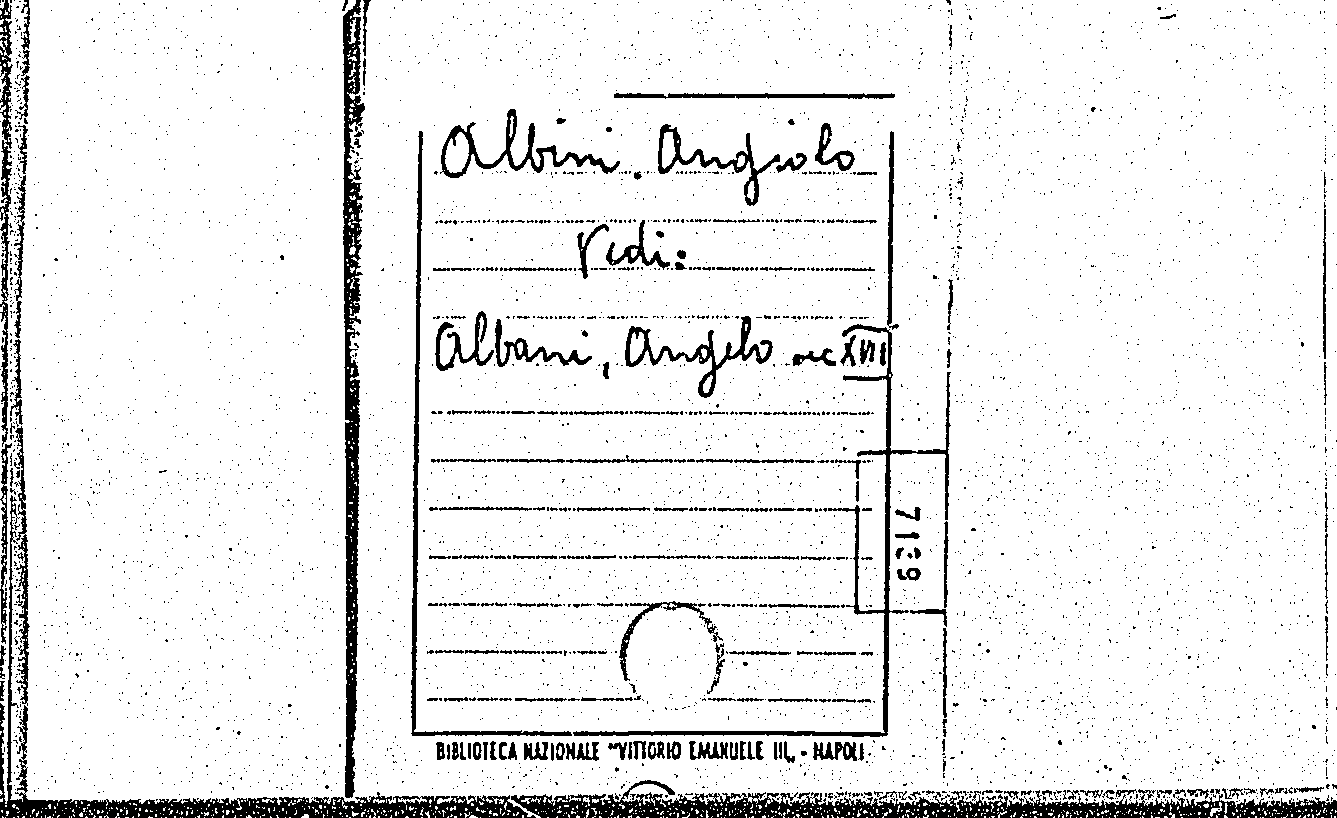 Albini. Angiolo
Vedi:
Albani, Angelo sec XVII
7139
BIBLIOTECA NAZIONALE "VITTORIO EMANUELE III„ - NAPOLI